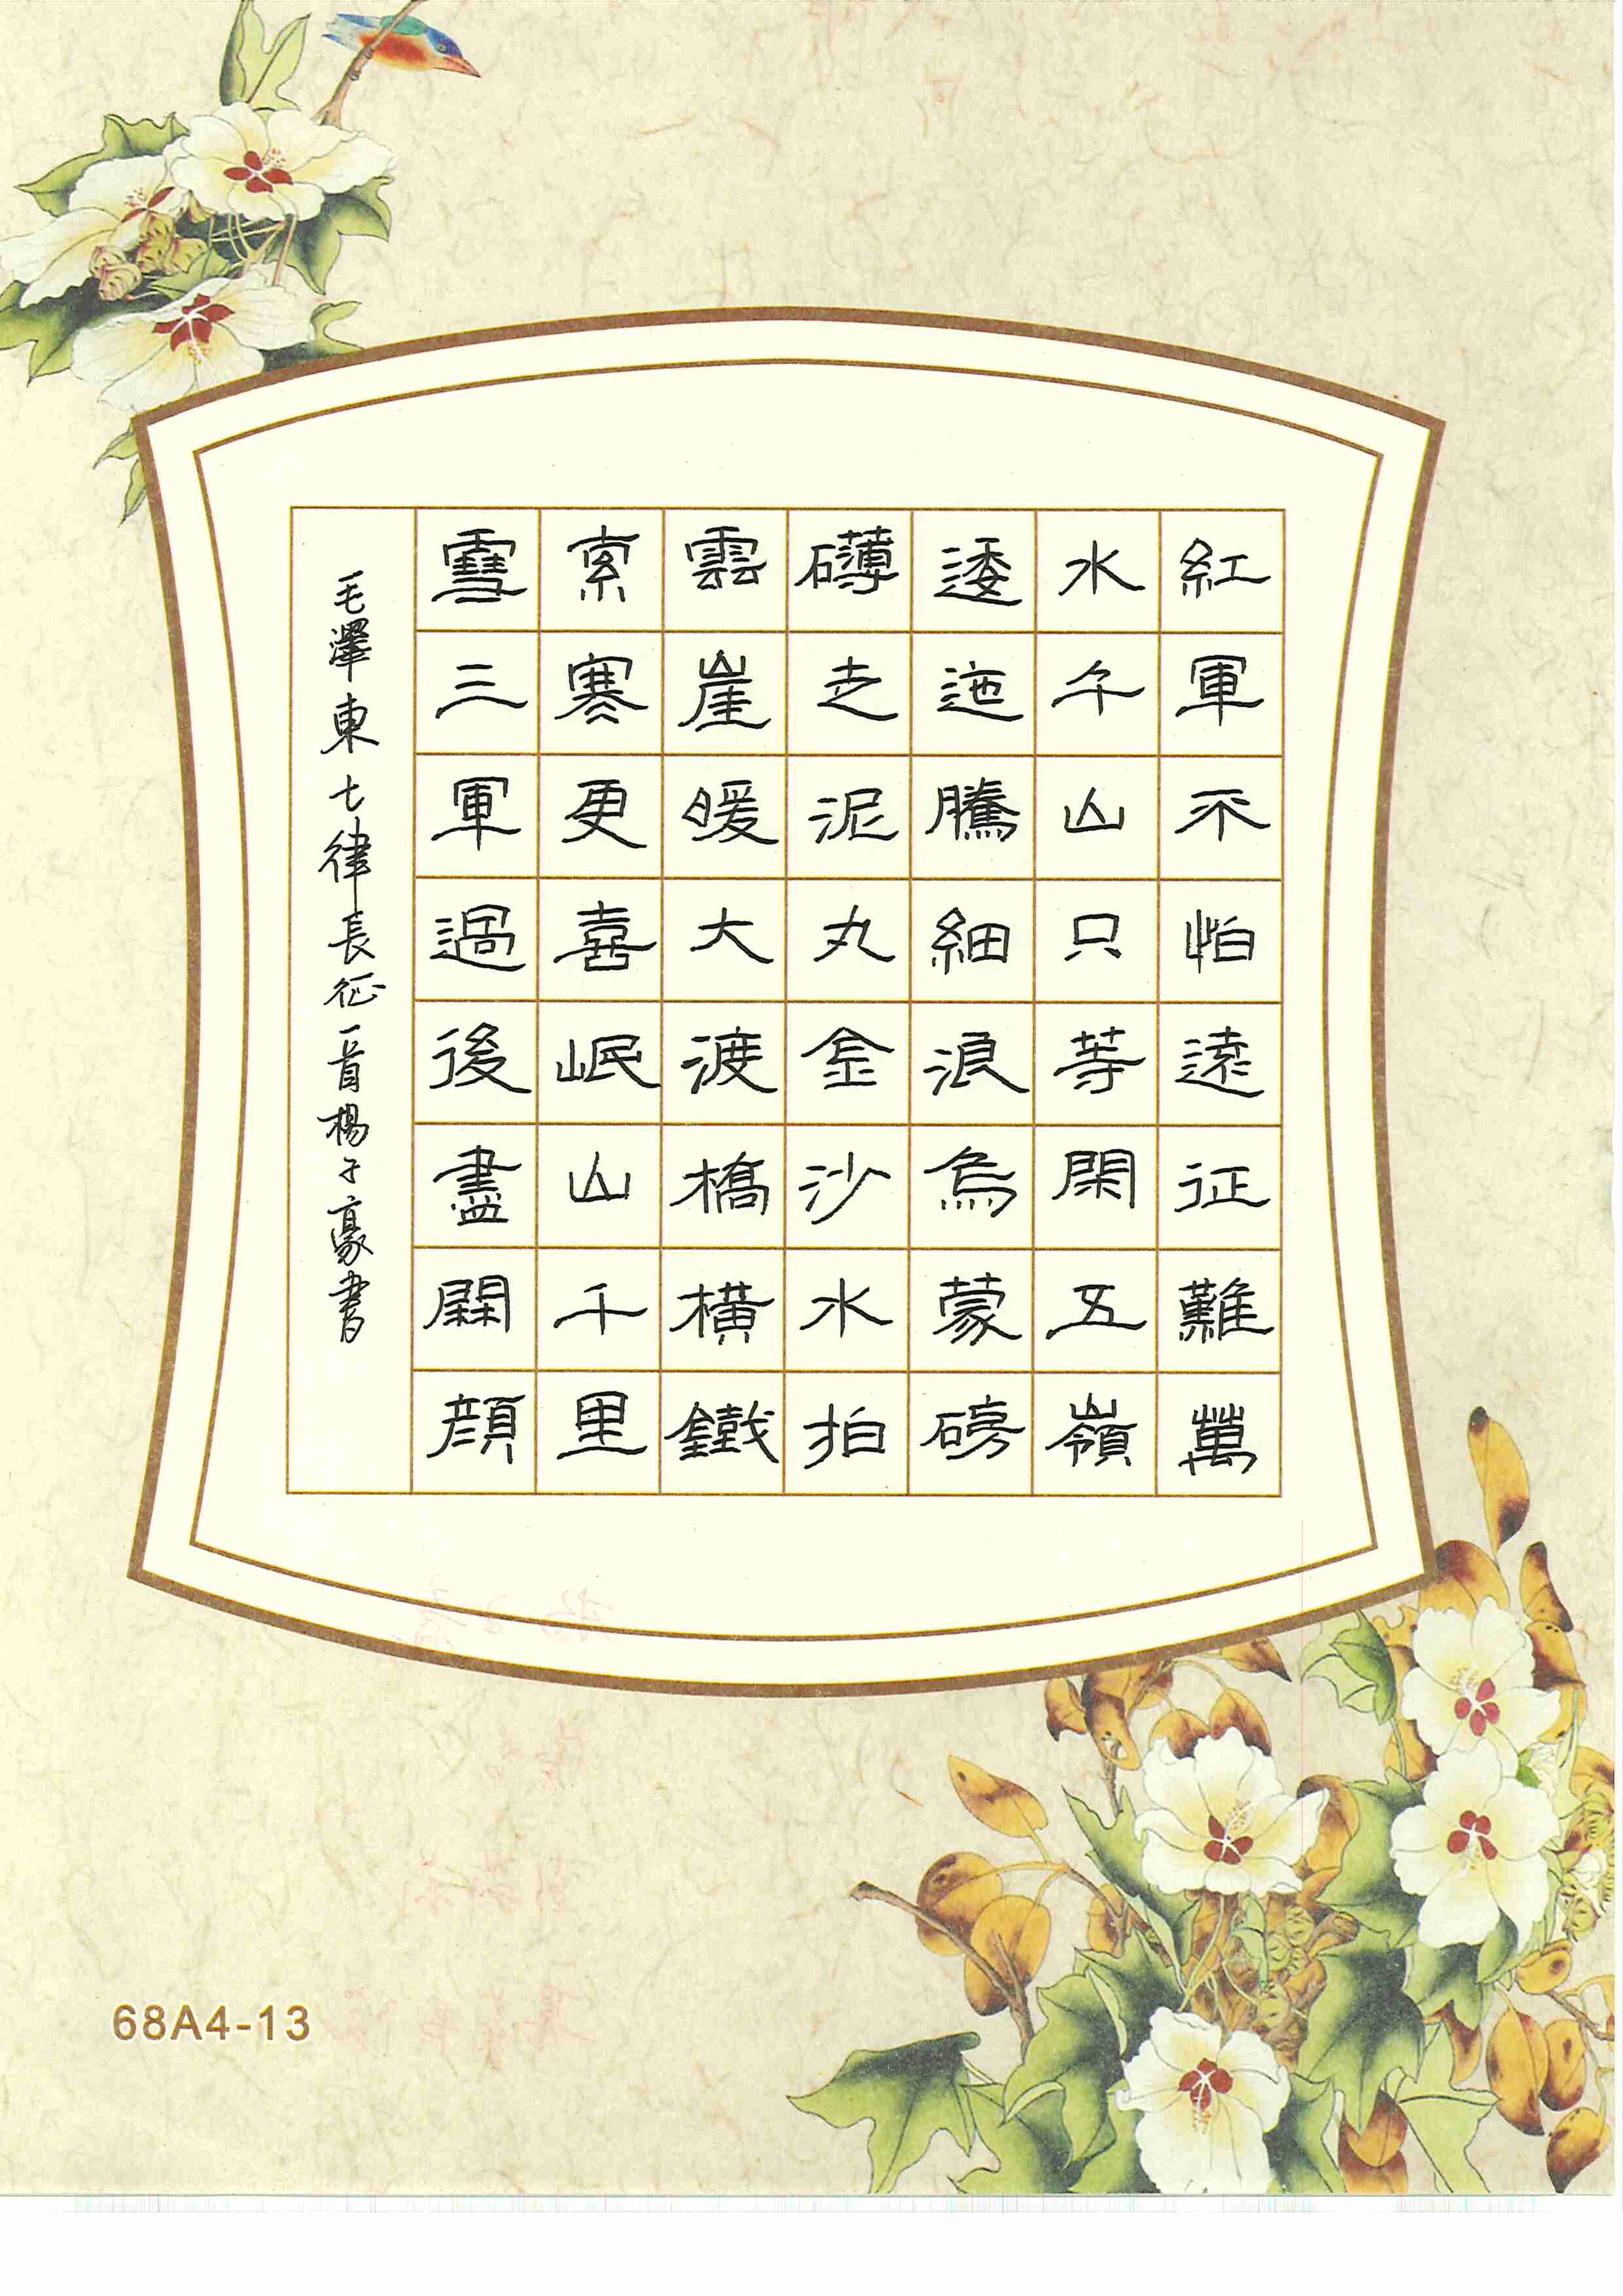 紅軍不怕遠征難萬
水千山只等閑五嶺
逶迤騰細浪烏蒙磅
礴走泥丸金沙水拍
雲崖暖大渡橋橫鐵
索寒更喜岷山千里
雪三軍過後盡開顔
毛澤東七律長征一首楊子豪書
68A4-13